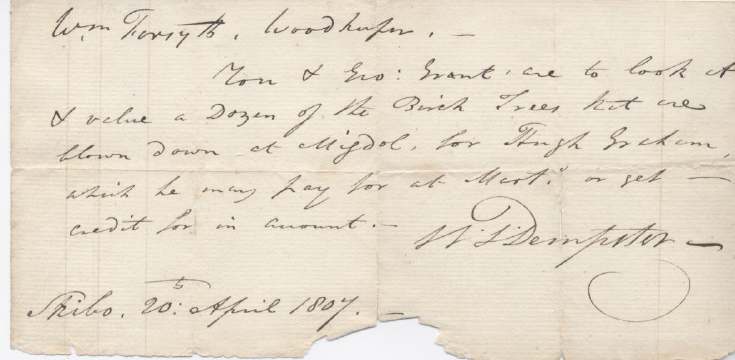 Wm Forsyth, Woodkeeper. —
You & Geo: Grant are to look at
& value a Dozen of the Birch Trees that are
blown down at Migdol, for Hugh Graham,
which he may pay for at Mart.s or get —
credit for in account. —
Dempster —
Skibo. 20th: April 1807. —